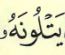 يَتْلُونَهُۥ